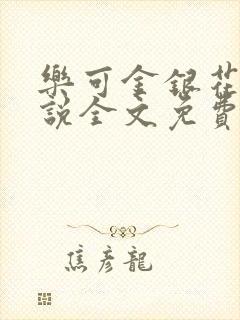 樂可金銀花
說全文免費
焦彦龍